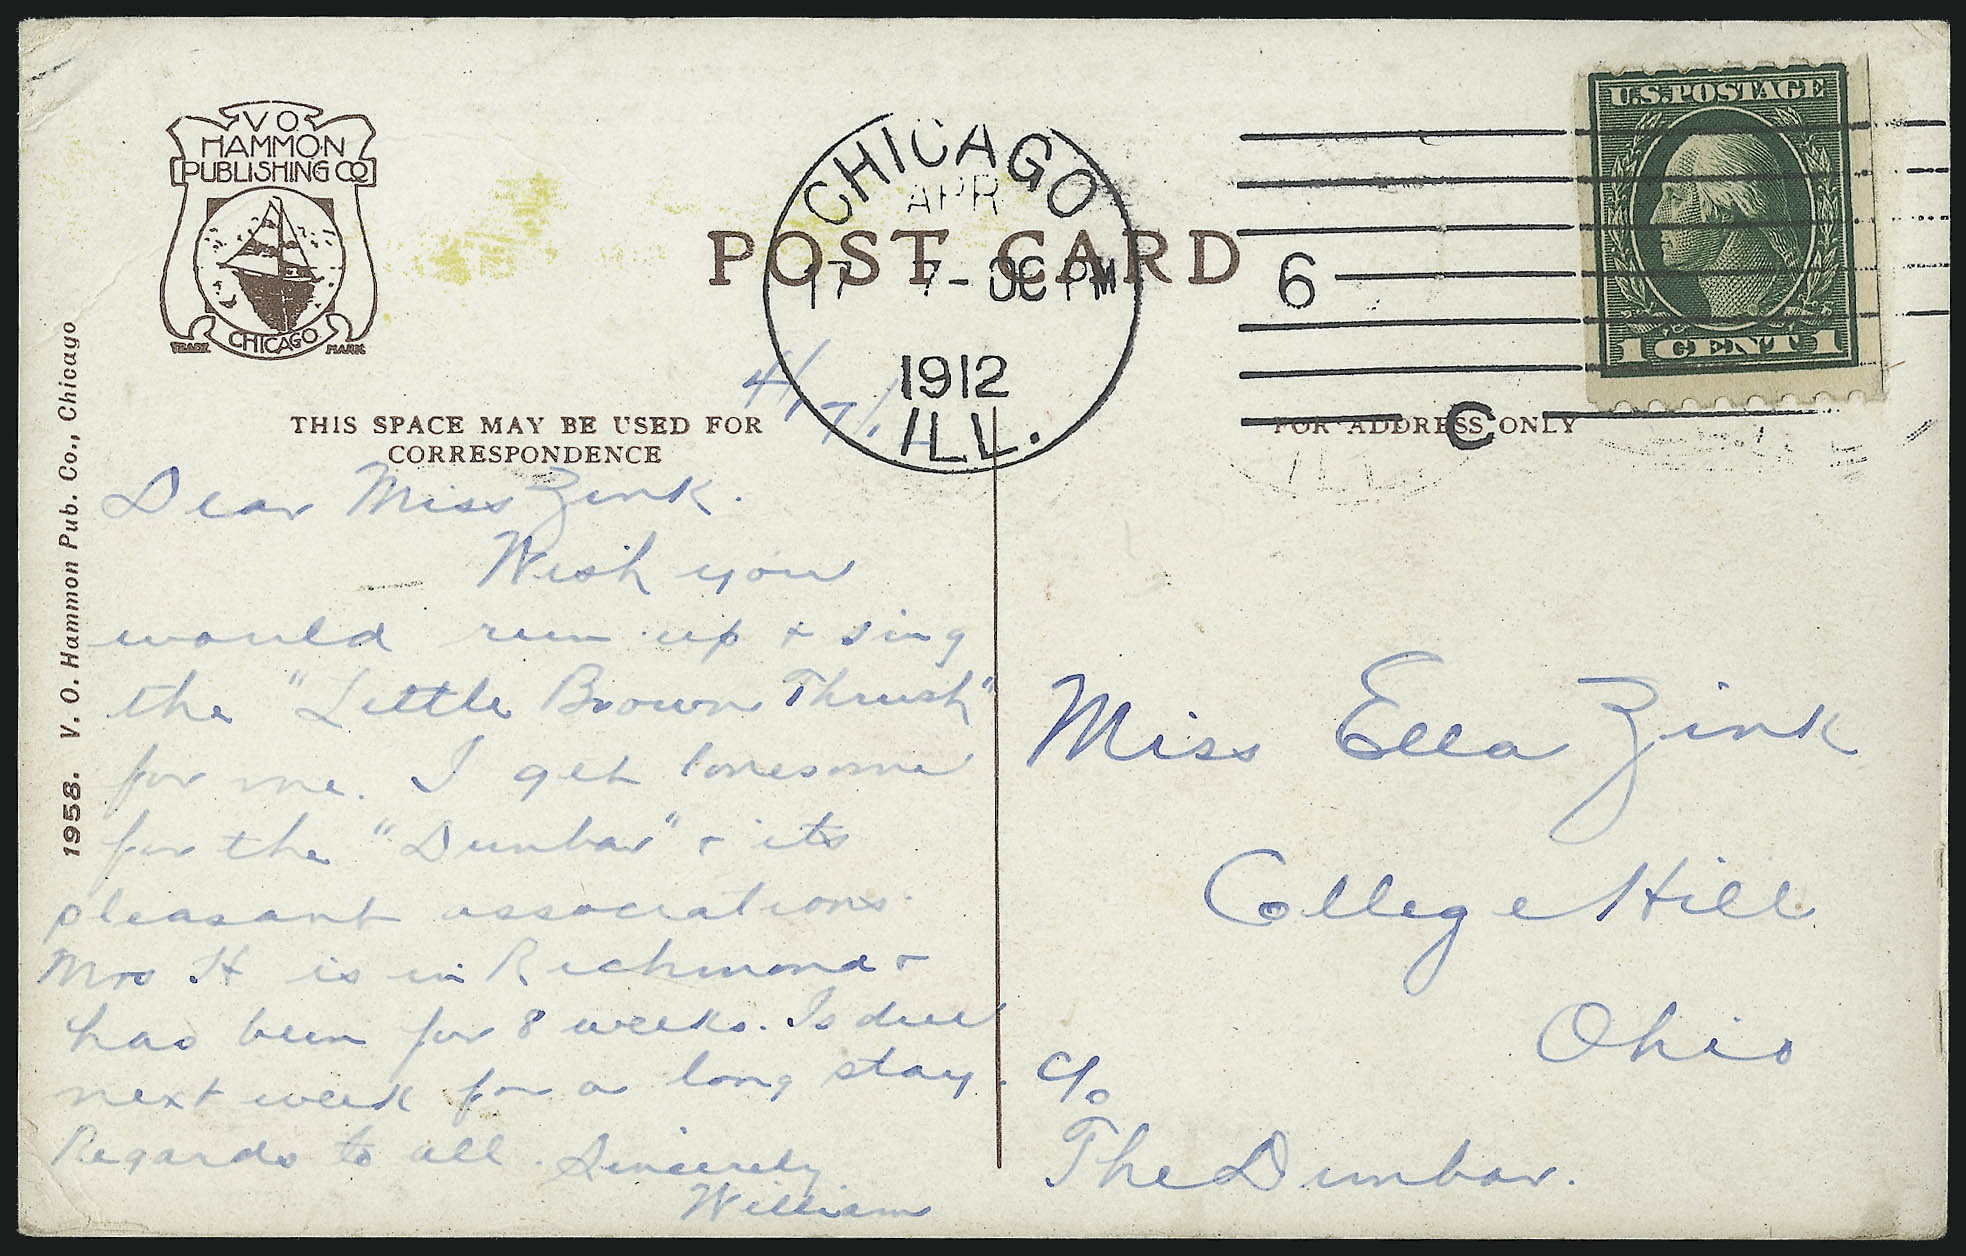 V O
HAMMON
PUBLISHING CO
CHICAGO
TRADE MARK
U.S. POSTAGE
1 CENT 1
CHICAGO
APR
17 7-00 PM
1912
ILL.
6
C
POST CARD
THIS SPACE MAY BE USED FOR
CORRESPONDENCE
FOR ADDRESS ONLY
1958. V. O. Hammon Pub. Co., Chicago
4/17/12
Dear Miss Zink.
Wish you
would run up + sing
the "Little Brown Thrush"
for me. I get lonesome
for the "Dunbar" + its
pleasant associations.
Mrs H is in Richmond +
has been for 8 weeks. Is due
next week for a long stay.
Regards to all. Sincerely
William
Miss Ella Zink
College Hill
Ohio
c/o
The Dunbar.